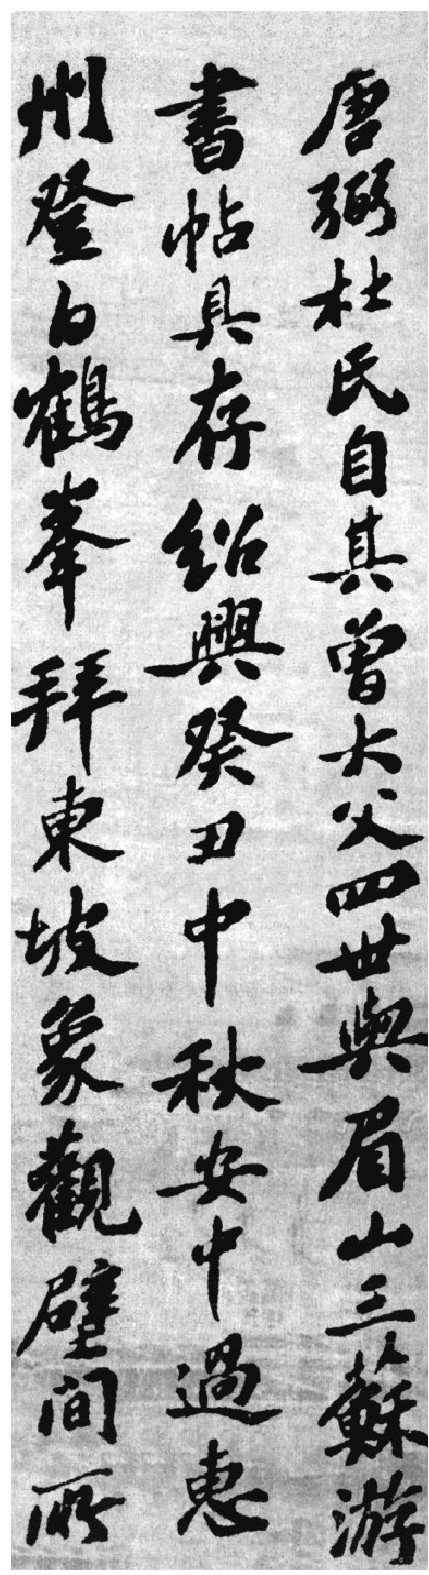 唐弼杜氏自其曾大父四世與眉山三蘇游
書帖具存紹興癸丑中秋安中過惠
州登白鶴峯拜東坡象觀壁間所